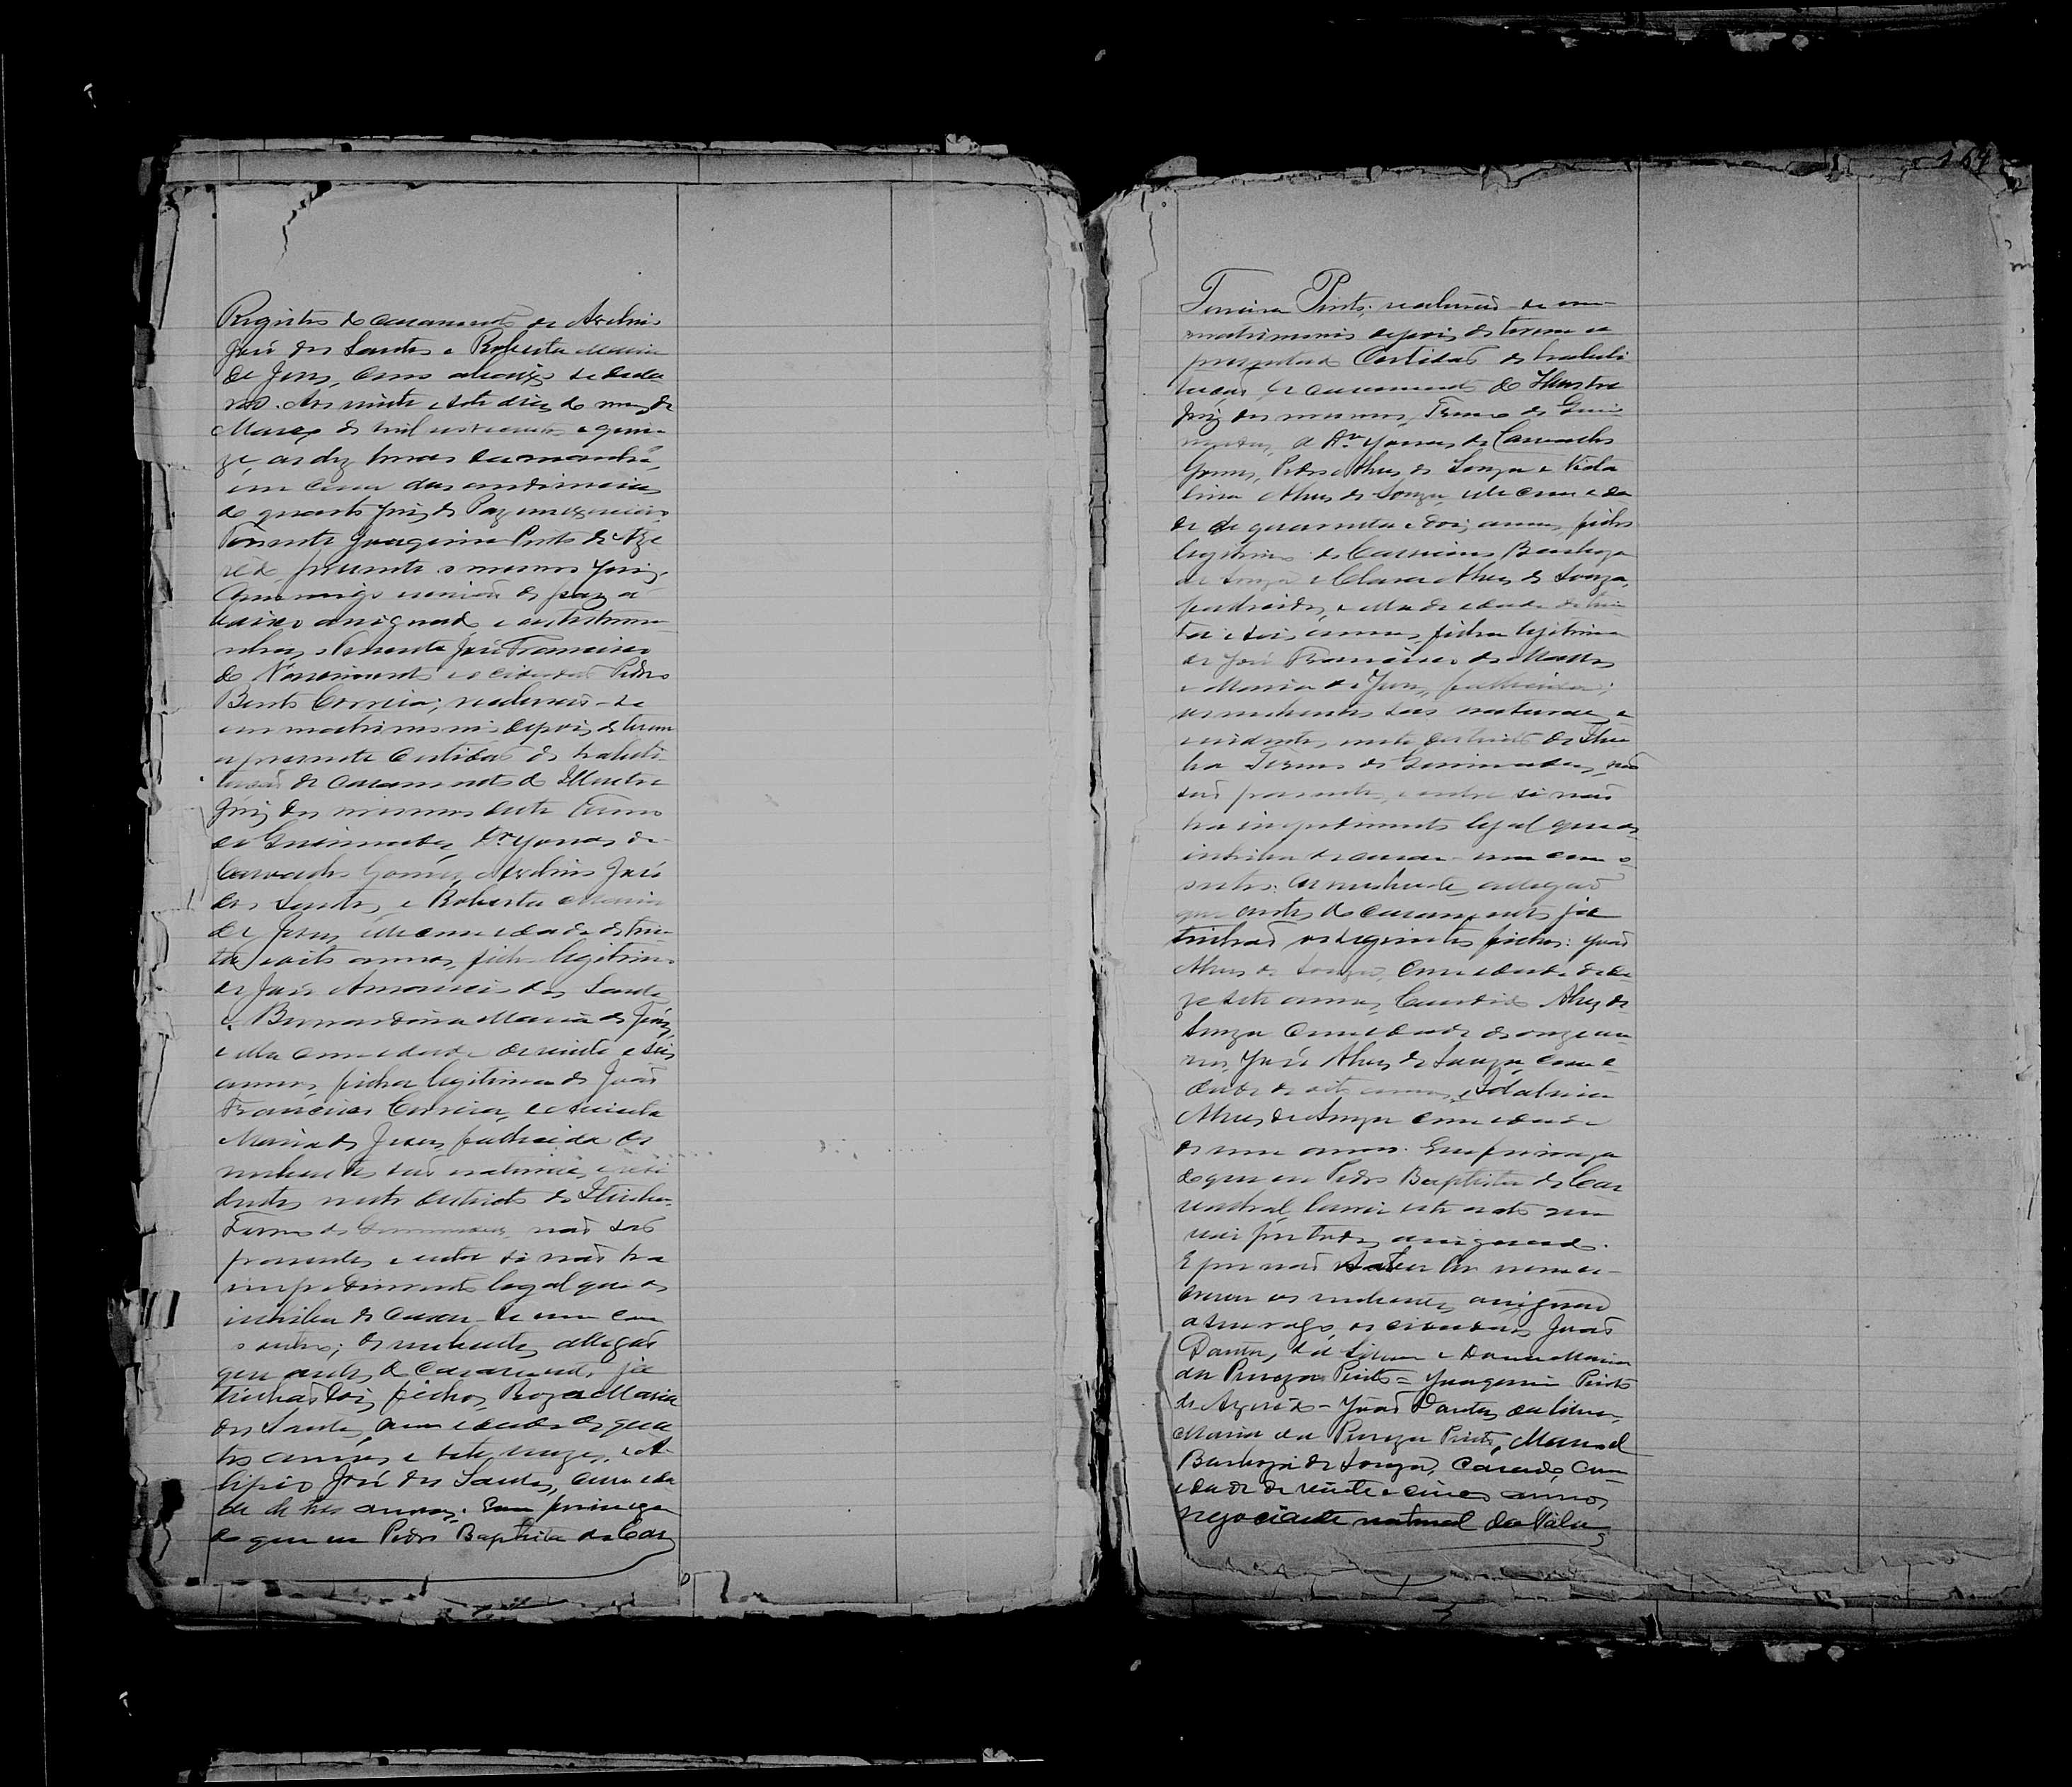 Registro do casamento de Avelino
José dos Santos e Roberta Maria
de Jesus, como abaixo se decla
ra. Aos vinte e sete dias do mez de
Março de mil novecentos e quin-
ze, as dez horas da manhã,
em casa das audiencias
do quarto Juiz de Paz em exercicio
Tenente Joaquim Pinto de Aze
redo, presente o mesmo Juiz,
Commigo escrivão de paz a
baixo assignado e as testemu-
nhas, o Tenente José Francisco
do Nascimento e o cidadão Pedro
Bento Correia; receberão-se
em matrimonio depois de terem
apresente certidão de habili-
tação de casamento do Illustre
Juiz dos mesmos deste Termo
de Geremoabo, Dr. Jonas de
Carvalho Gomes, Avelino José
dos Santos, e Roberta Maria
de Jesus, elle com edade de trin-
ta e oito annos, filho legitimo
de José Amancio dos Santos
e Bernardina Maria de Jesus,
e ella com edade de vinte e seis
annos, filha legitima de João
Francisco Correia, e
Maria de Jesus, fallecida os
nubentes são naturaes, e resi
dentes neste districto de
Termo de Geremoabo, não são
parentes e entre si não ha
impedimento legal que os
inhiba de casar-se um com
o outro; Os nubentes allegão
que antes do casamento já
tinhão dois filhos, Roza Maria
dos Santos, com edade de qua
tro annos e sete mezes, e A-
lipio José dos Santos, com eda
de de tres annos. Em firmeza
do que eu Pedro Baptista de Car
Terceira Pinto; receberão-se em
matrimonio depois de terem a
presentado Certidão de habili
tação de casamento do Illustre
Juiz dos mesmos, Termo de Gere
moabo, o Dr. Jonas de Carvalho
Gomes, Pedro Alves de Souza e
Alves de Souza, elle com eda
de de quarenta e dois annos, filho
legitimo de Barboza
de Souza e Clara Alves de Souza,
fallecidos, e ella de edade de trin
ta e seis annos, filha legitima
de José Francisco de Mattos
e Maria de Jesus, fallecida;
os nubentes são naturaes, e
residentes, neste districto de
Termo de Geremoabo, não
são parentes, e entre si não
ha impedimento legal que os
inhiba de casar-se um com o
outro: Os nubentes, allegão
que antes do casamento já
tinhão os seguintes filhos: João
Alves de Souza, com edade de de
zesete annos, Candido Alves de
Souza com edade de onze an
nos, José Alves de Souza, com e
dade de oito annos, e
Alves de Souza com edade
de um anno. Em firmeza
do que eu Pedro Baptista de Car
valho lavrei este acto que
vai por todos assignado.
E por não saber ler nem es-
crever os nubentes, assignão
a seu rogo, os cidadãos João
Dantas, da Silva e Dona Maria
da Pureza Pinto = Joaquim Pinto
de Azeredo - João Dantas da Silva,
Maria da Pureza Pinto, Manoel
Barboza de Souza, Casado, com
edade de vinte e cinco annos,
negociante natural da